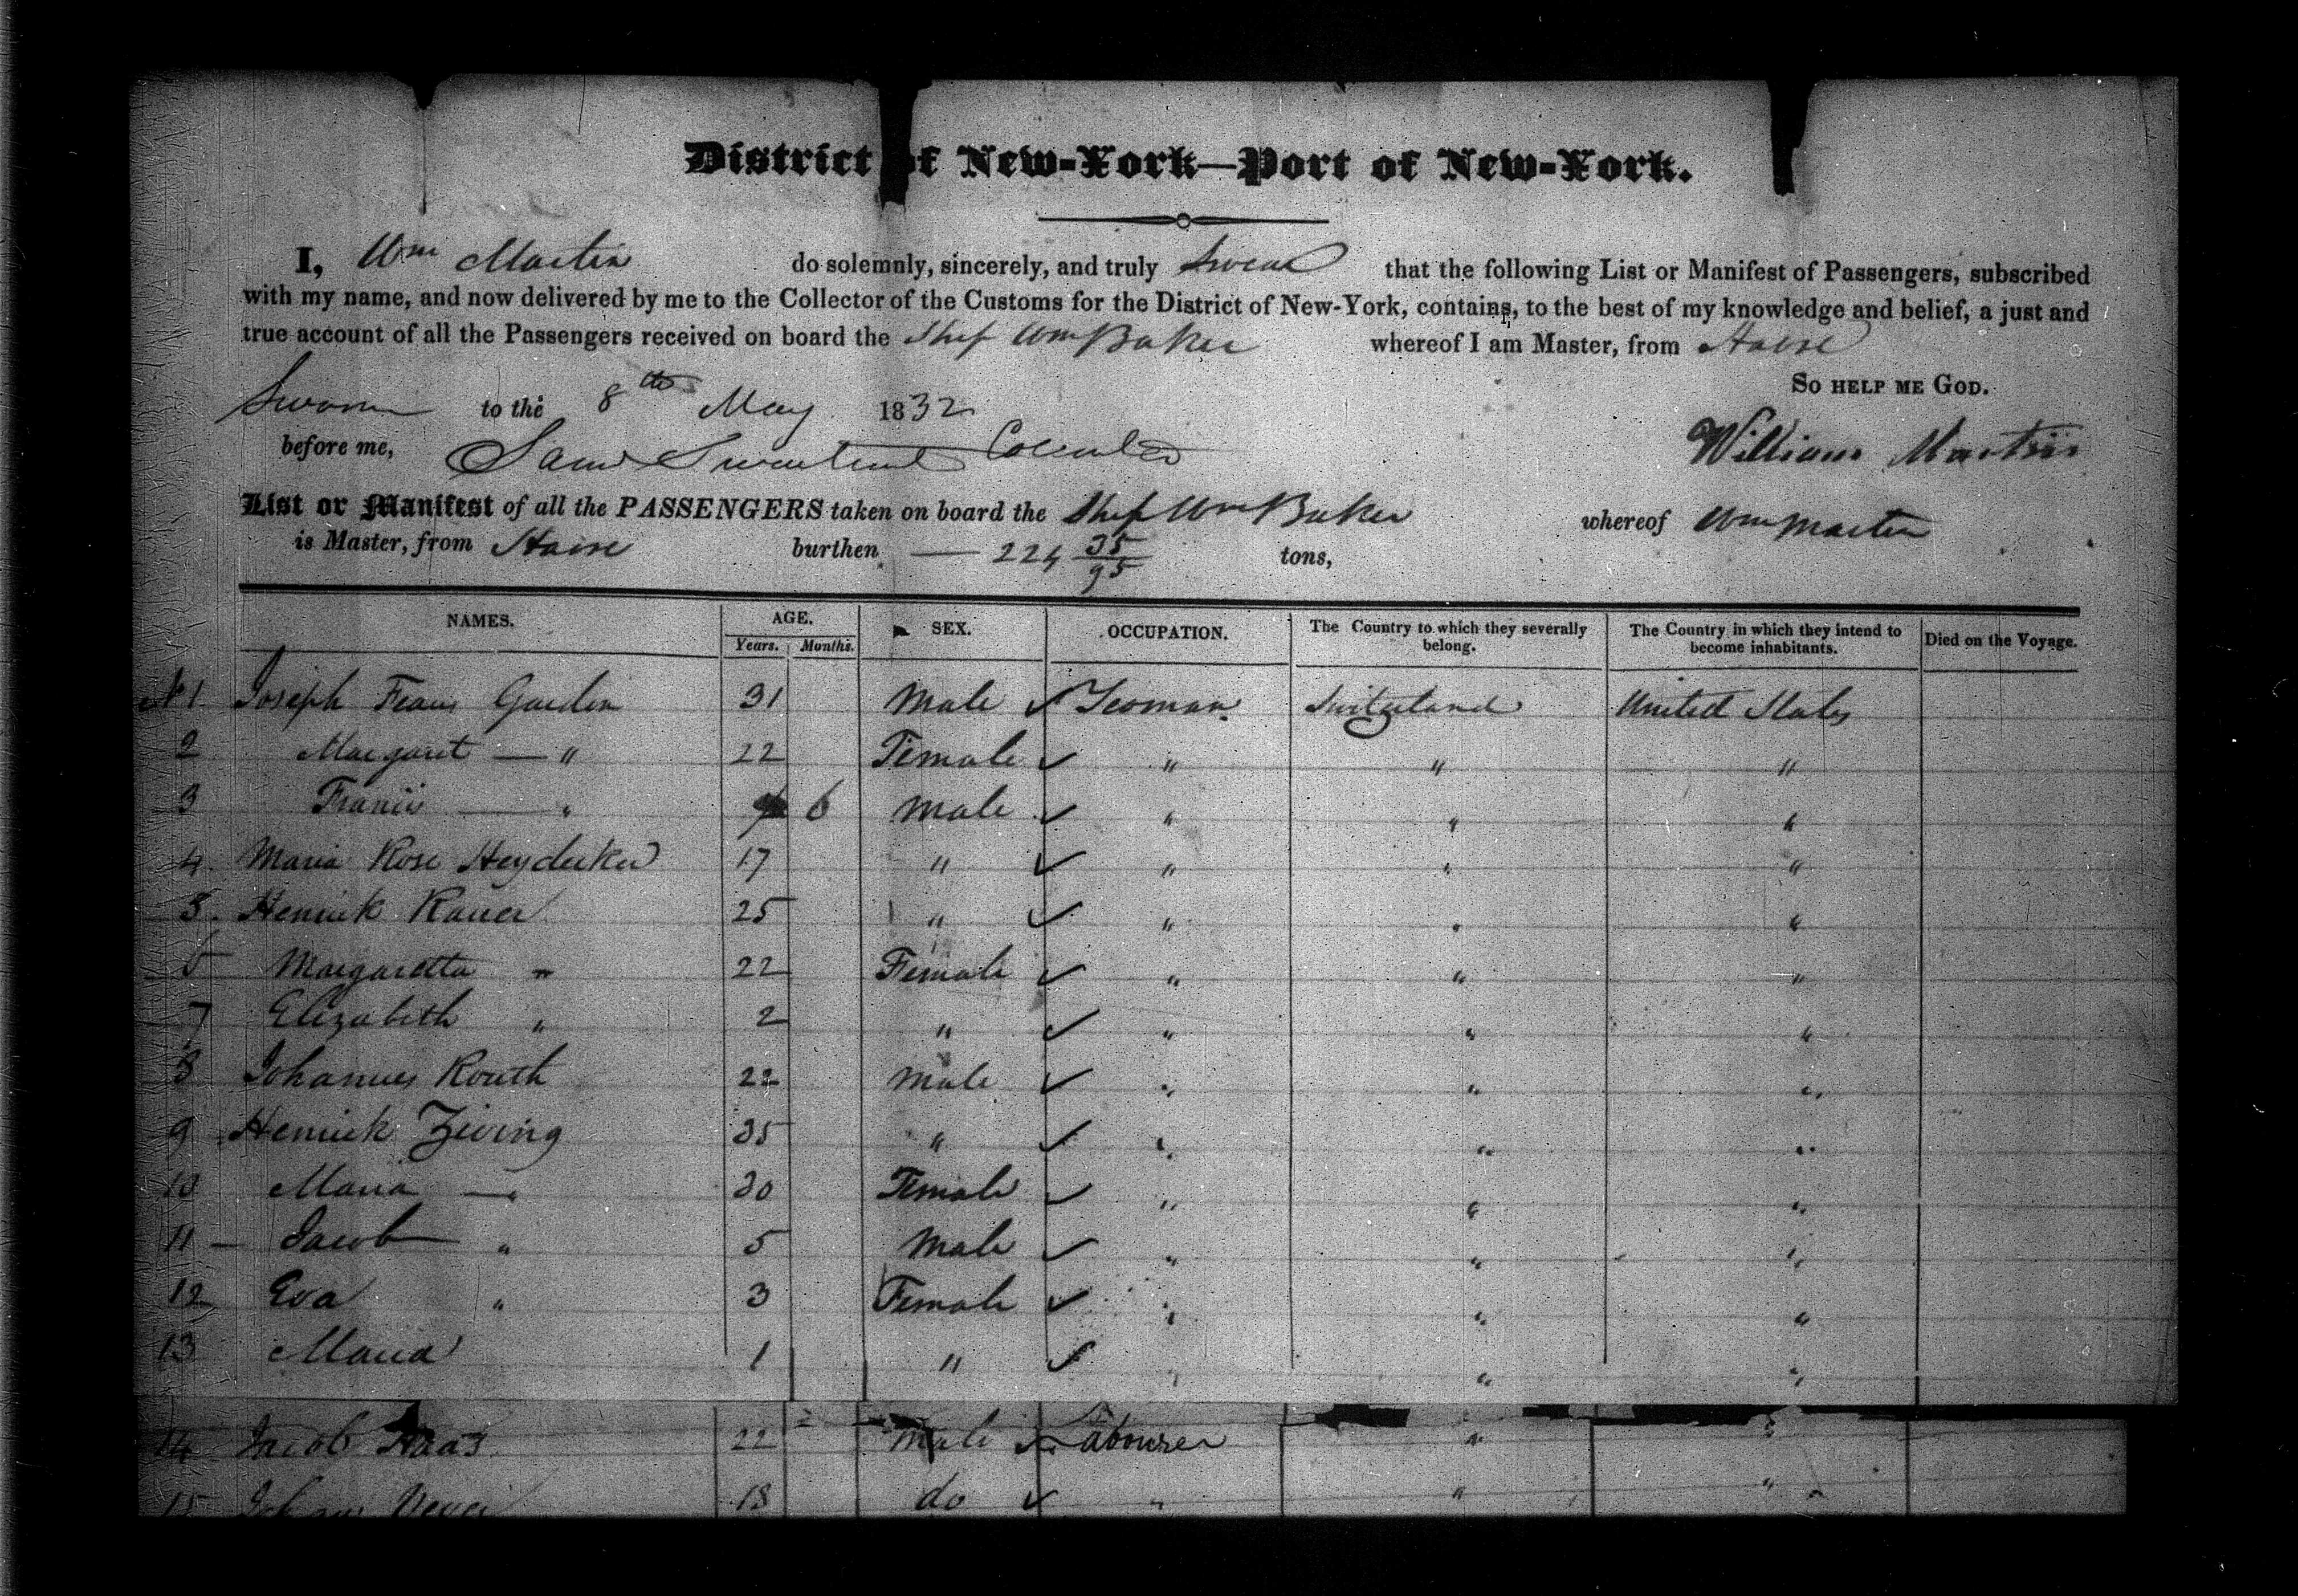 District of New-York—Port of New-York.
I, Wm Martin do solemnly, sincerely, and truly Swear that the following List or Manifest of Passengers, subscribed
with my name, and now delivered by me to the Collector of the Customs for the District of New-York, contains, to the best of my knowledge and belief, a just and
true account of all the Passengers received on board the Ship Wm Baker whereof I am Master, from Havre
So help me God.
Sworn to the 8th May 1832
before me, William Martin
List or Manifest of all the PASSENGERS taken on board the Ship Wm Baker whereof Wm Martin
is Master, from Havre burthen — 224 35/95 tons,
NAMES. AGE. Years. Months. SEX. OCCUPATION. The Country to which they severally belong. The Country in which they intend to become inhabitants. Died on the Voyage.
No 1 Joseph Frans 31 Male ✓ Yeoman Switzerland United States
2 Margaret — " 22 Female ✓ " " "
3 Francis — " 6 Male ✓ " " "
4 Maria Rose Heydecker 17 " ✓ " " "
5. Henrick Rauer 25 " ✓ " " "
6 Margaretta " 22 Female ✓ " " "
7 Elizabeth " 2 " ✓ " " "
8 Johannes Routh 22 Male ✓ " " "
9 Henrick Ziving 35 " ✓ " " "
10 Maria — " 30 Female ✓ " " "
11 — Jacob " 5 Male ✓ " " "
12 Eva " 3 Female ✓ " " "
13 Maria 1 " ✓ " " "
14 Jacob Haas 22 Male ✓ Labourer " "
15 18 do ✓ " " "